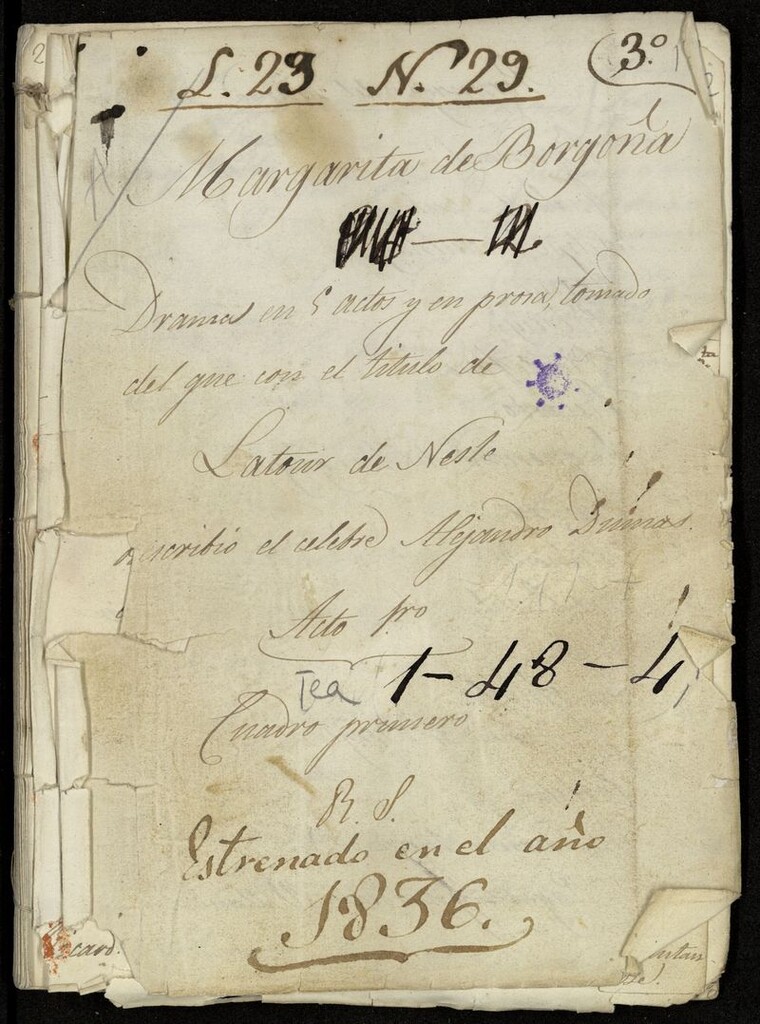 L. 29 N.º 29. 3.º
Margarita de Borgoña
Drama en 5 actos y en prosa, tomado
del que con el titulo de
Latour de Nesle
escribió el celebre Alejandro Dumas.
Acto pro
Tea 1-48-4,
Cuadro primero
R. S.
Estrenado en el año
1836.